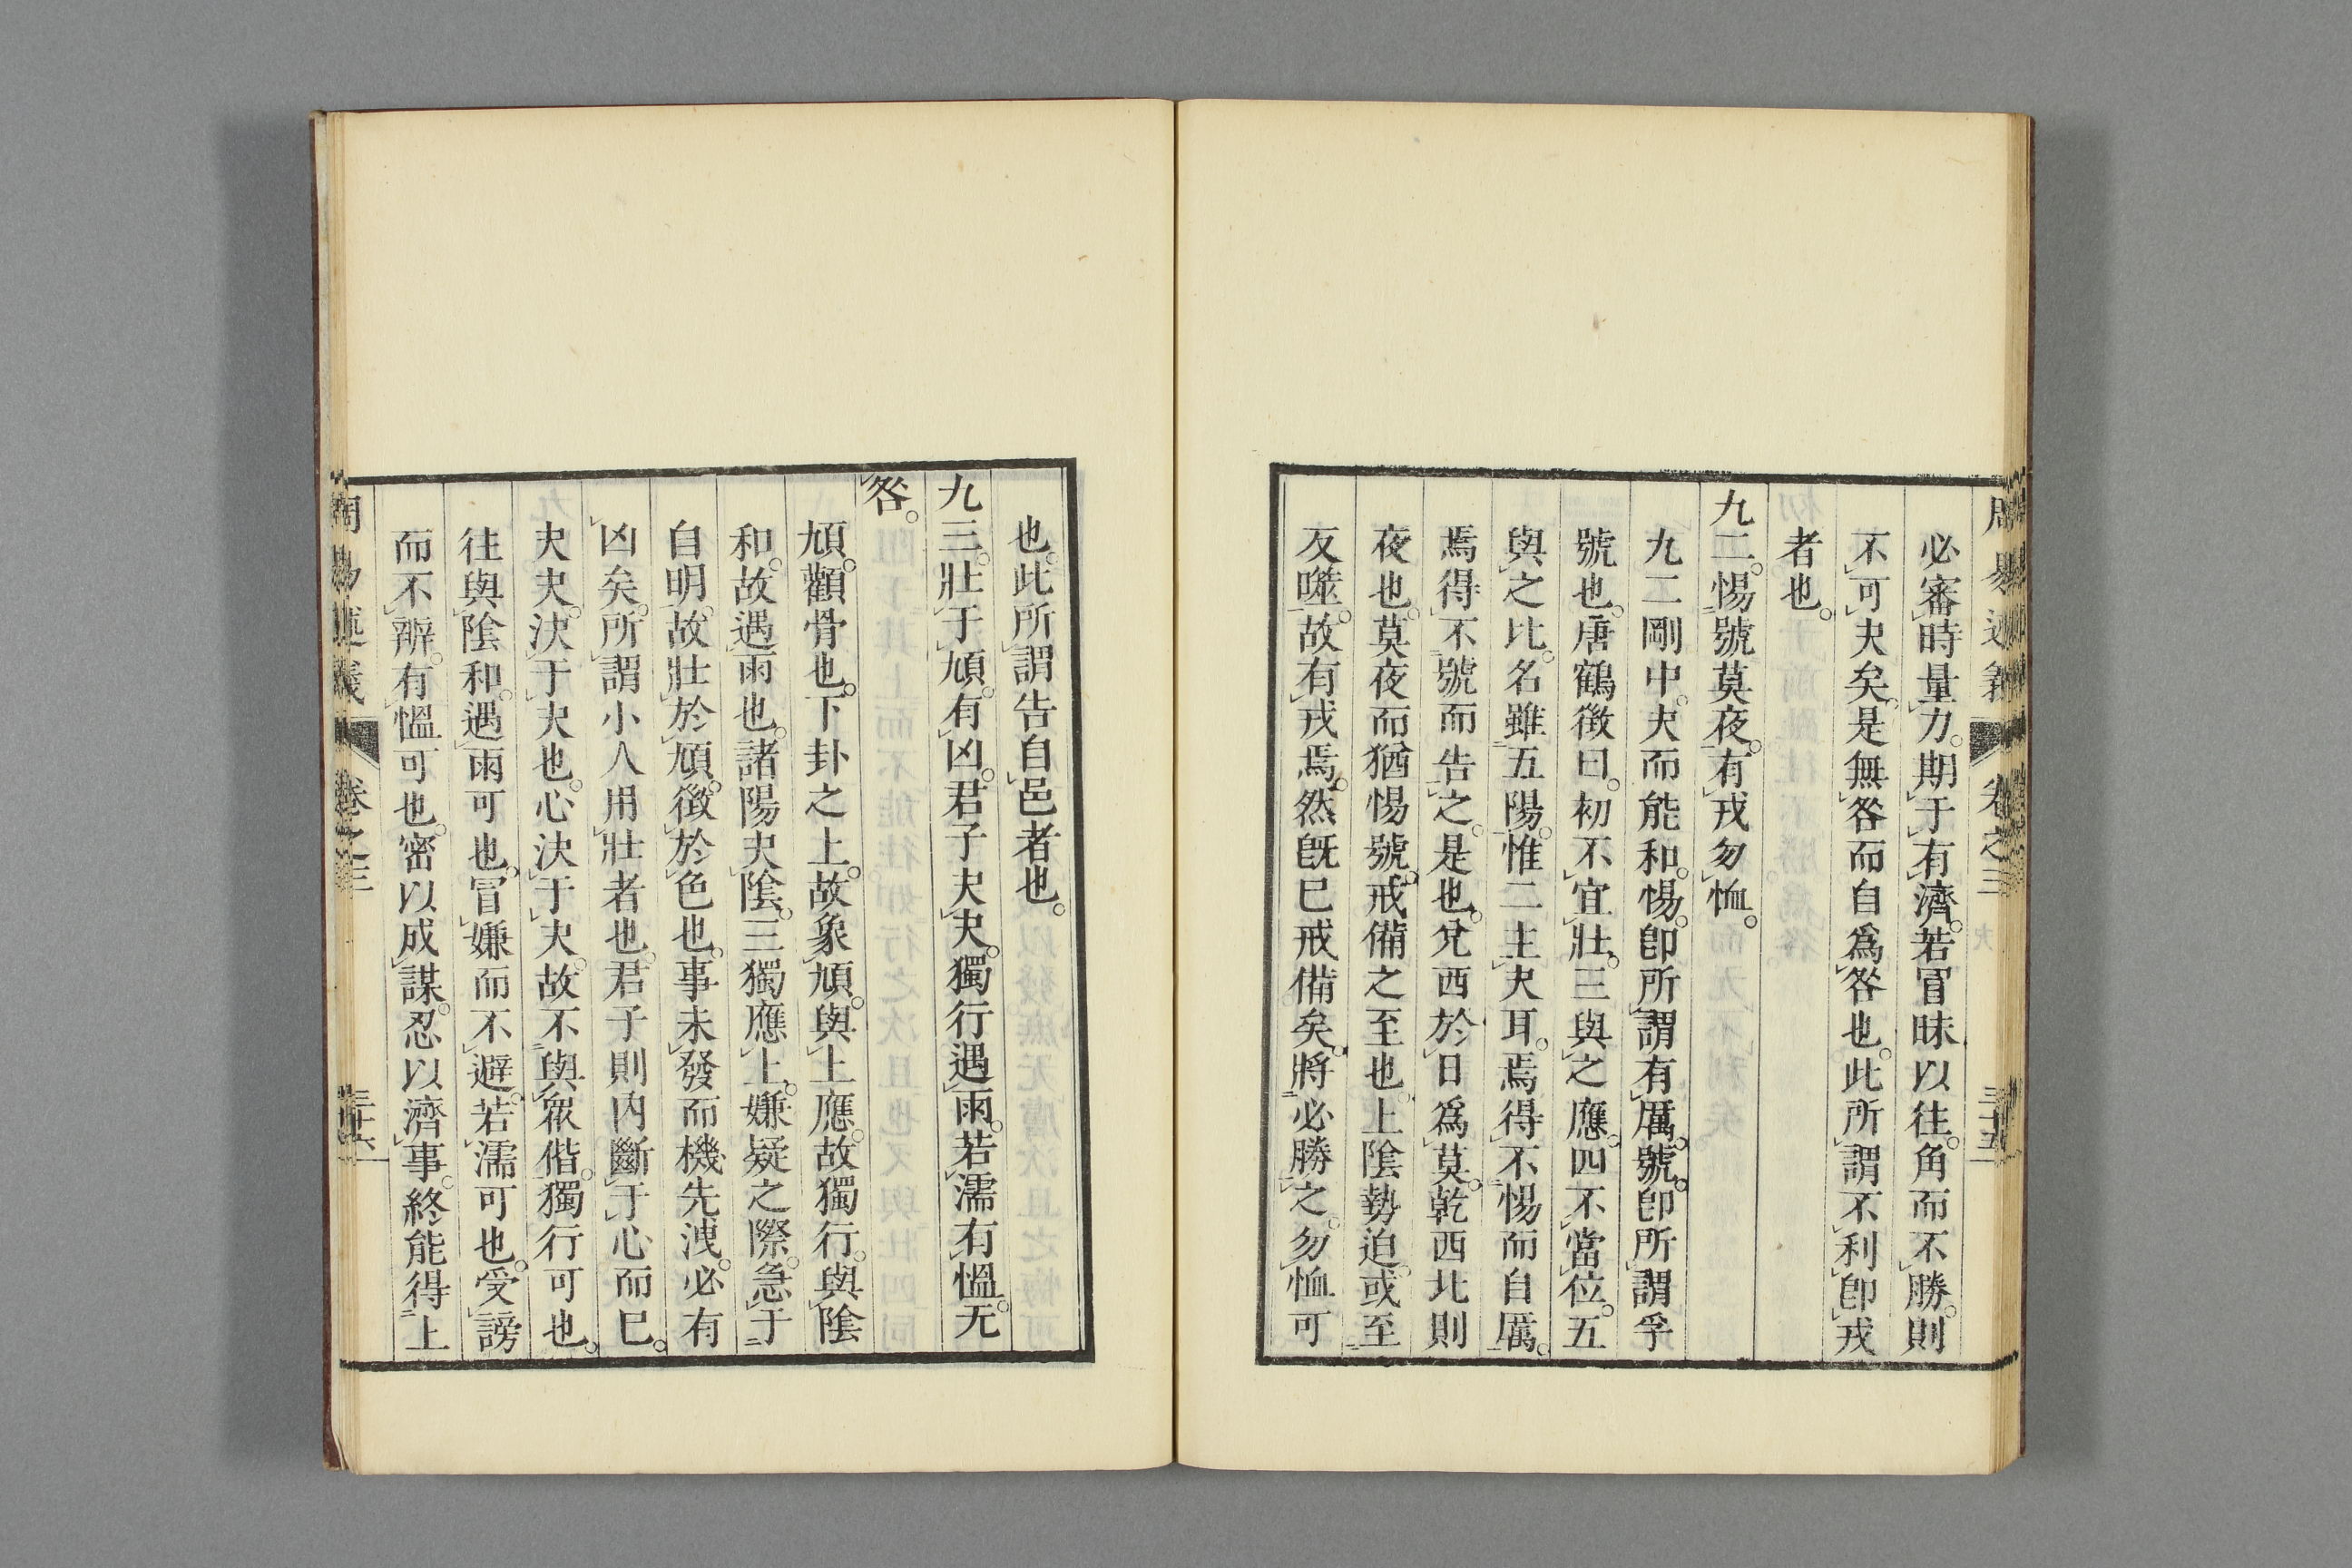 周易述義 卷之三 夬 三十五
必審時量力。期于有濟。若冒昧以往。角而不勝。則
不可夬矣。是無咎而自爲咎也。此所謂不利卽戎
者也。
九二。惕號莫夜。有戎勿恤。
九二剛中。夬而能和。惕。卽所謂有厲。號。卽所謂孚
號也。唐鶴徵曰。初不宜壯。三與之應。四不當位。五
與之比。名雖五陽。惟二主夬耳。焉得不惕而自厲。
焉得不號而告之。是也。兌西於日爲莫。乾西北則
夜也。莫夜而猶惕號。戒備之至也。上陰勢迫。或至
反噬。故有戎焉。然旣已戒備矣。將必勝之。勿恤可
也。此所謂告自邑者也。
九三。壯于頄。有凶。君子夬夬。獨行遇雨。若濡有慍。无
咎。
頄。顴骨也。下卦之上。故象頄。與上應。故獨行。與陰
和。故遇雨也。諸陽夬陰。三獨應上。嫌疑之際。急于
自明。故壯於頄。徵於色也。事未發而機先洩。必有
凶矣。所謂小人用壯者也。君子則內斷于心而已。
夬夬。決于夬也。心決于夬。故不與衆偕。獨行可也。
往與陰和。遇雨可也。冒嫌而不避。若濡可也。受謗
而不辨。有慍可也。密以成謀。忍以濟事。終能得上
周易述義 卷之三 三十六